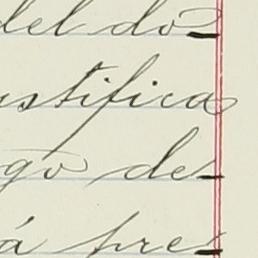 del do
ustifica
go de
á pre